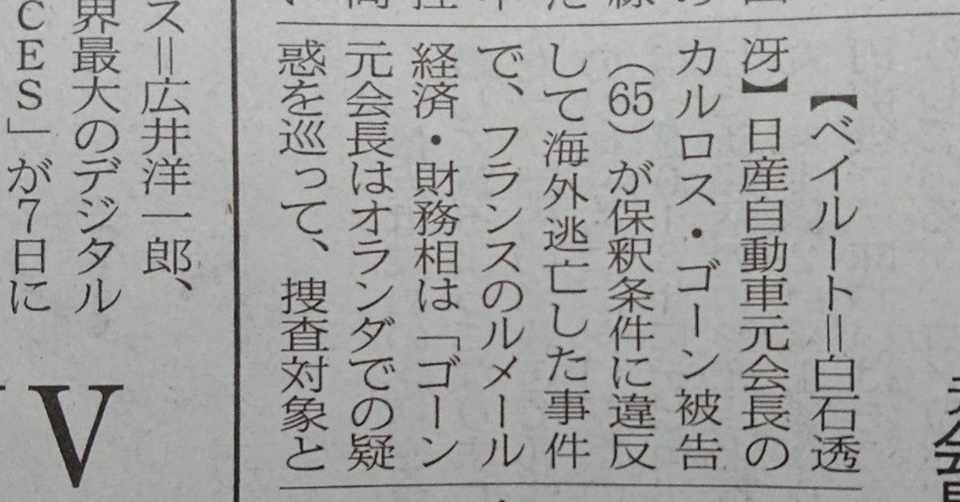 【ベイルート＝白石透
冴】日産自動車元会長の
カルロス・ゴーン被告
（65）が保釈条件に違反
して海外逃亡した事件
で、フランスのルメール
経済・財務相は「ゴーン
元会長はオランダでの疑
惑を巡って、捜査対象と
ス＝広井洋一郎、
界最大のデジタル
CES」が7日に
V